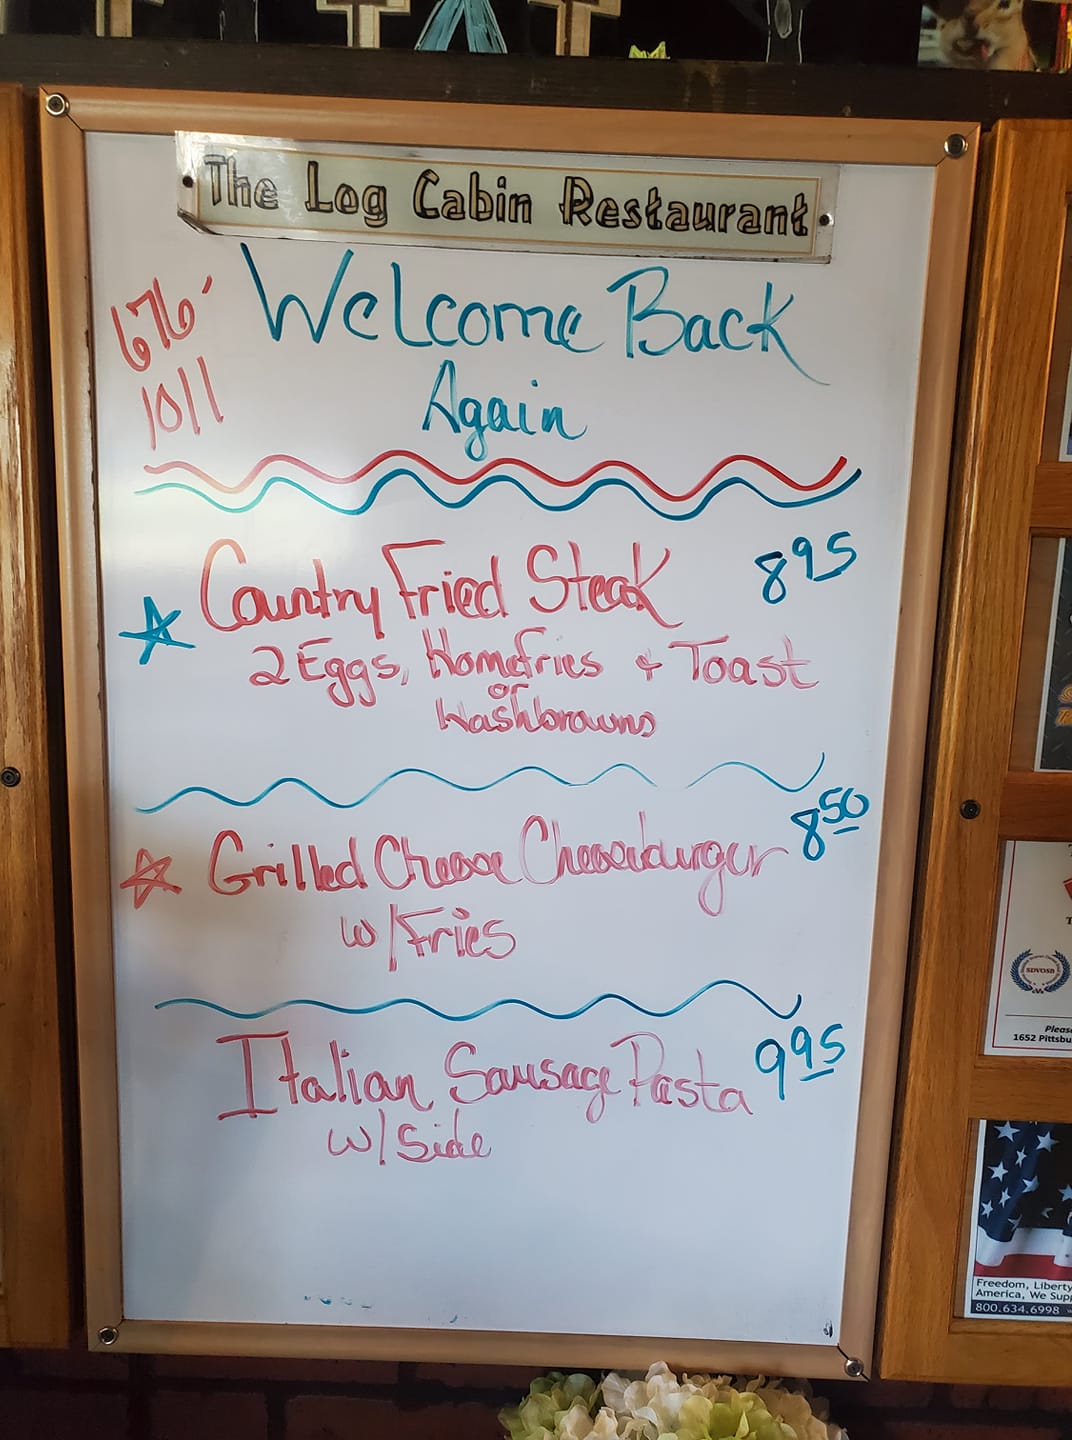 The Log Cabin Restaurant
Welcome Back
Again
676-
1011
Country Fried Steak 8.95
2 Eggs, Homefries & Toast
or
Hashbrowns
Grilled Cheese Cheeseburger 8.50
w/Fries
Italian Sausage Pasta 9.95
w/Side
SDVOSB
1652
Freedom, Liberty
America, We
800.634.6998